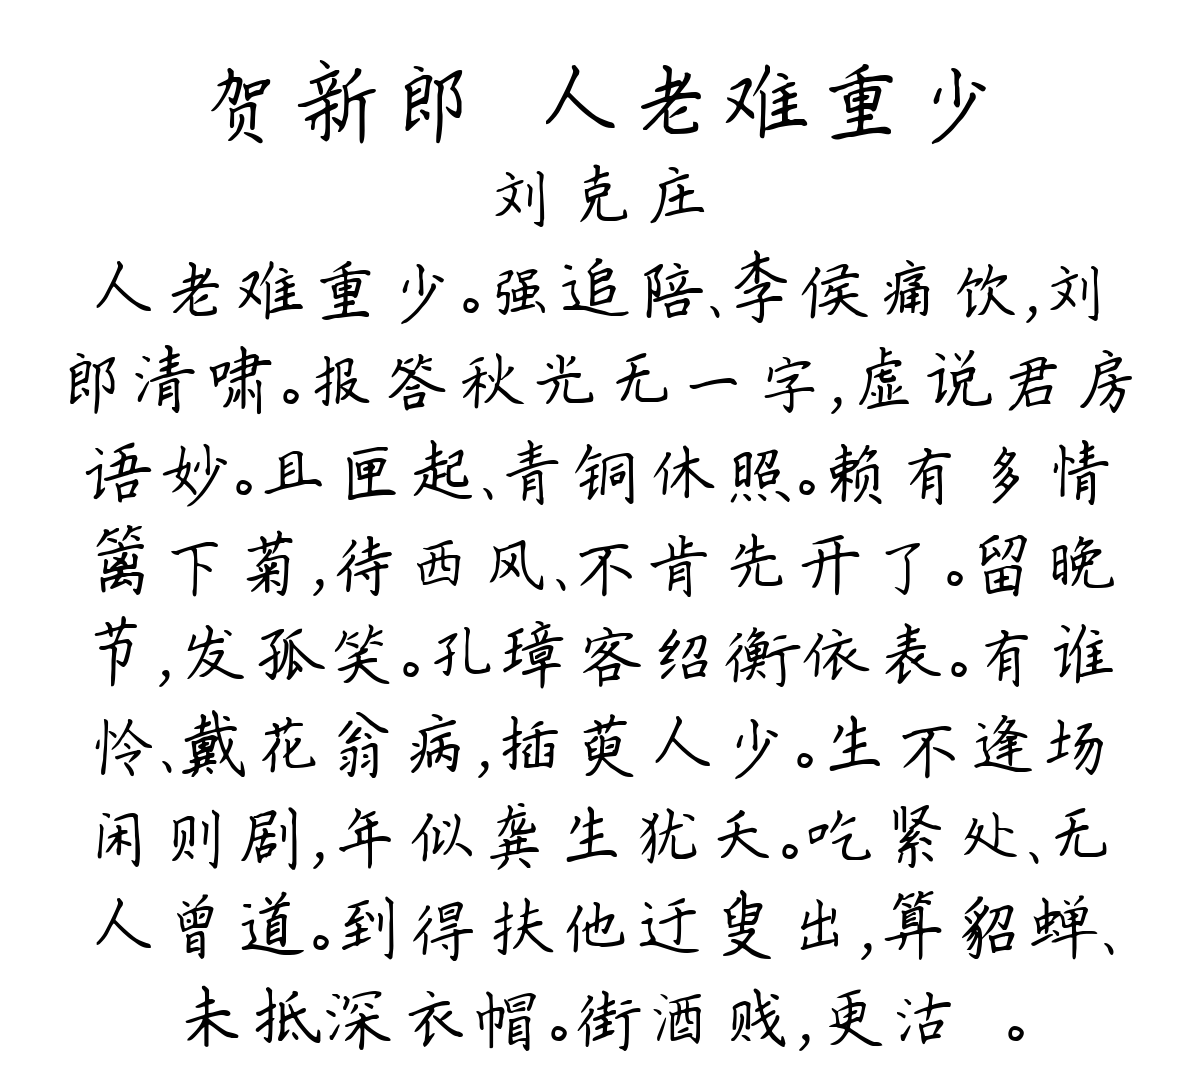 贺新郎 人老难重少
刘克庄
人老难重少。强追陪、李侯痛饮,刘
郎清啸。报答秋光无一字,虚说君房
语妙。且匣起、青铜休照。赖有多情
篱下菊,待西风、不肯先开了。留晚
节,发孤笑。孔璋客绍衡依表。有谁
怜、戴花翁病,插萸人少。生不逢场
闲则剧,年似龚生犹夭。吃紧处、无
人曾道。到得扶他迂叟出,算貂蝉、
未抵深衣帽。街酒贱,更沽 。